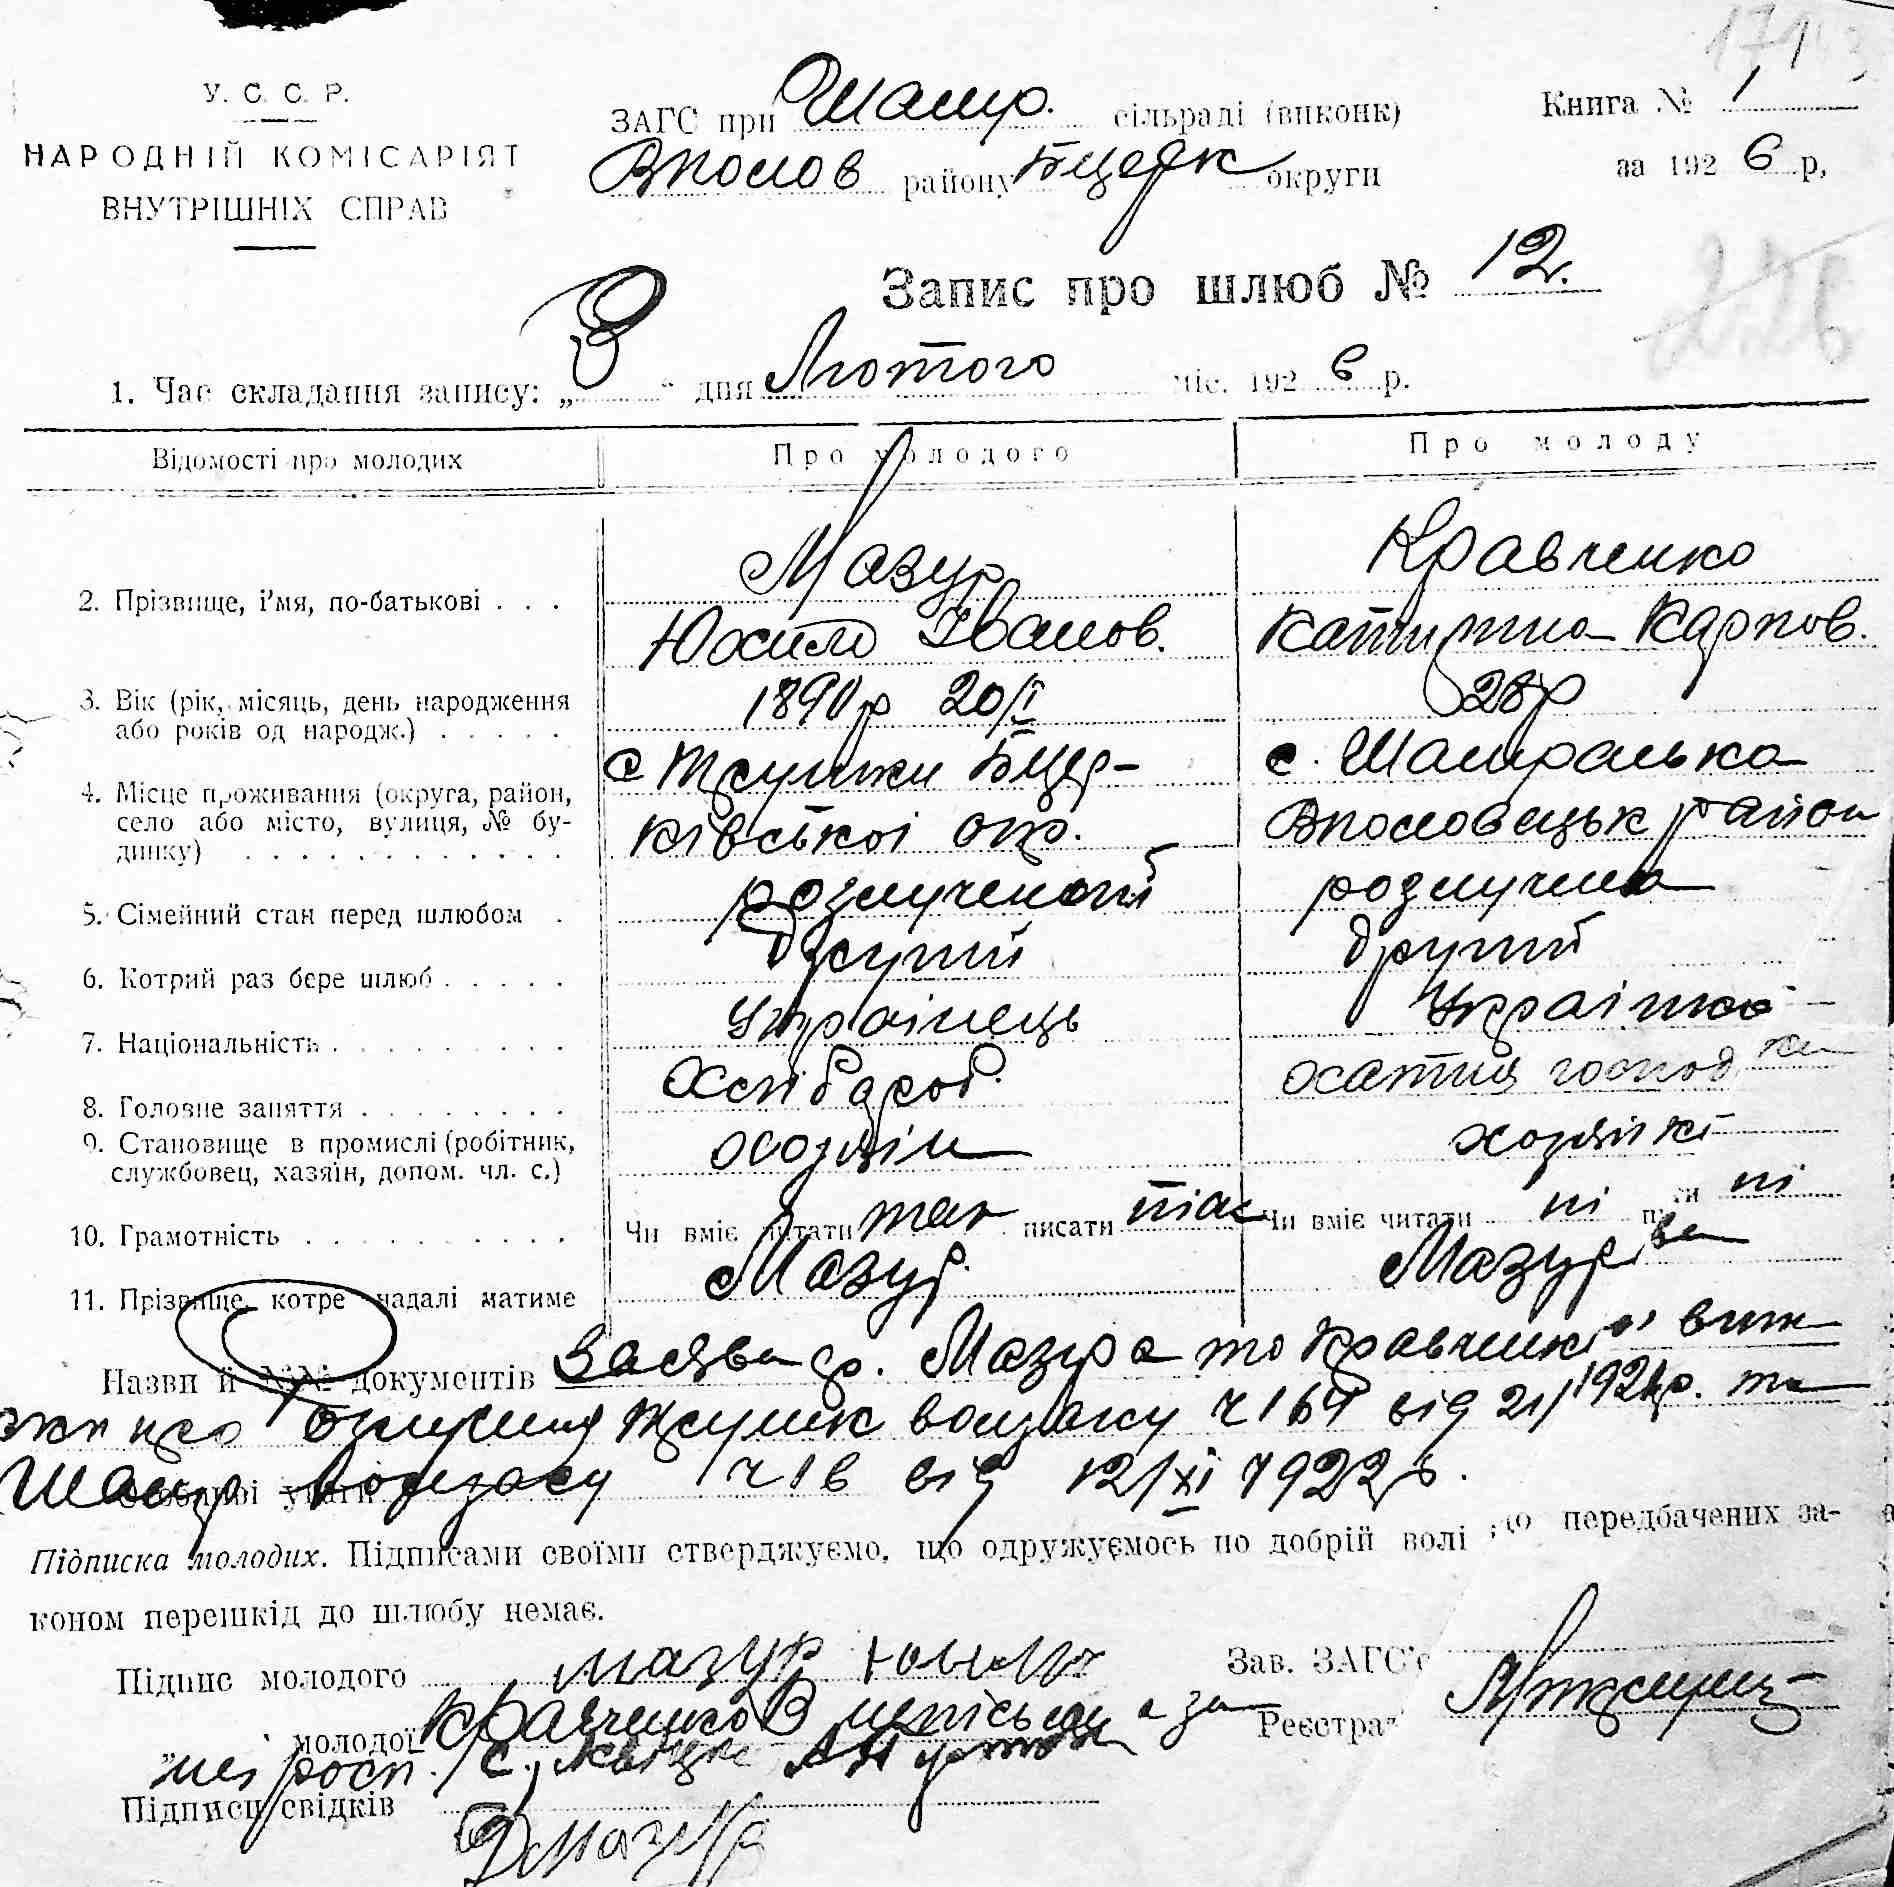 У. С. С. Р.
НАРОДНІЙ КОМІСАРІЯТ
ВНУТРІШНІХ СПРАВ
ЗАГС при Шамр. сільраді (виконк)
Вполов району Бцерк округи
Книга № 1
за 1926 р,
Запис про шлюб № 12.
1. Час складання запису: „3“ дня Лютого міс. 1926 р.
Відомості про молодих Про молодого Про молоду
2. Прізвище, і'мя, по-батькові . . . Мазур Кравченко
Юхим Іванов. Катирина Карпов.
3. Вік (рік, місяць, день народження або років од народж.) . . . . . 1890р 20/I 28р
4. Місце проживання (округа, район, село або місто, вулиця, № будинку) . . . . . . . . . . . . с Трушки Бцер-
ківської окр. с. Шамраївка
Вполовецьк район
5. Сімейний стан перед шлюбом . розлученний розлучена
6. Котрий раз бере шлюб . . . . . другий другий
7. Національність . . . . . . . . . Українець Українка
8. Головне заняття . . . . . . . . Хлібароб. хатня господ
9. Становище в промислі (робітник, службовец, хазяїн, допом. чл. с.) хозяїн хозяїки
10. Грамотність . . . . . . . . . . Чи вміє читати так писати так Чи вміє читати ні ні
11. Прізвище, котре надалі матиме Мазур. Мазур
Назви й №№ документів Заява гр. Мазура та Кравченко
про Трушк волзагсу ч 164 від 21/ та
Шамр волзагсу ч 16 від 12/XI 1922р.
Особливі уваги
Підписка молодих. Підписами своїми стверджуємо, що одружуємось по добрій волі до передбачених за-
коном перешкід до шлюбу немає.
Підпис молодого мазур Зав. ЗАГС'
молодої Кравченкова за Реєстра
неї росп.
Підписи свідків
Мазур